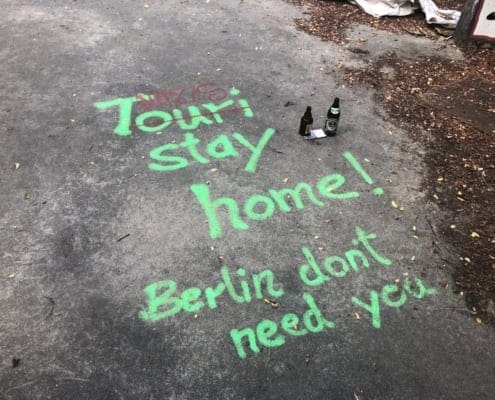 Touri
stay
home!
Berlin don't
need you